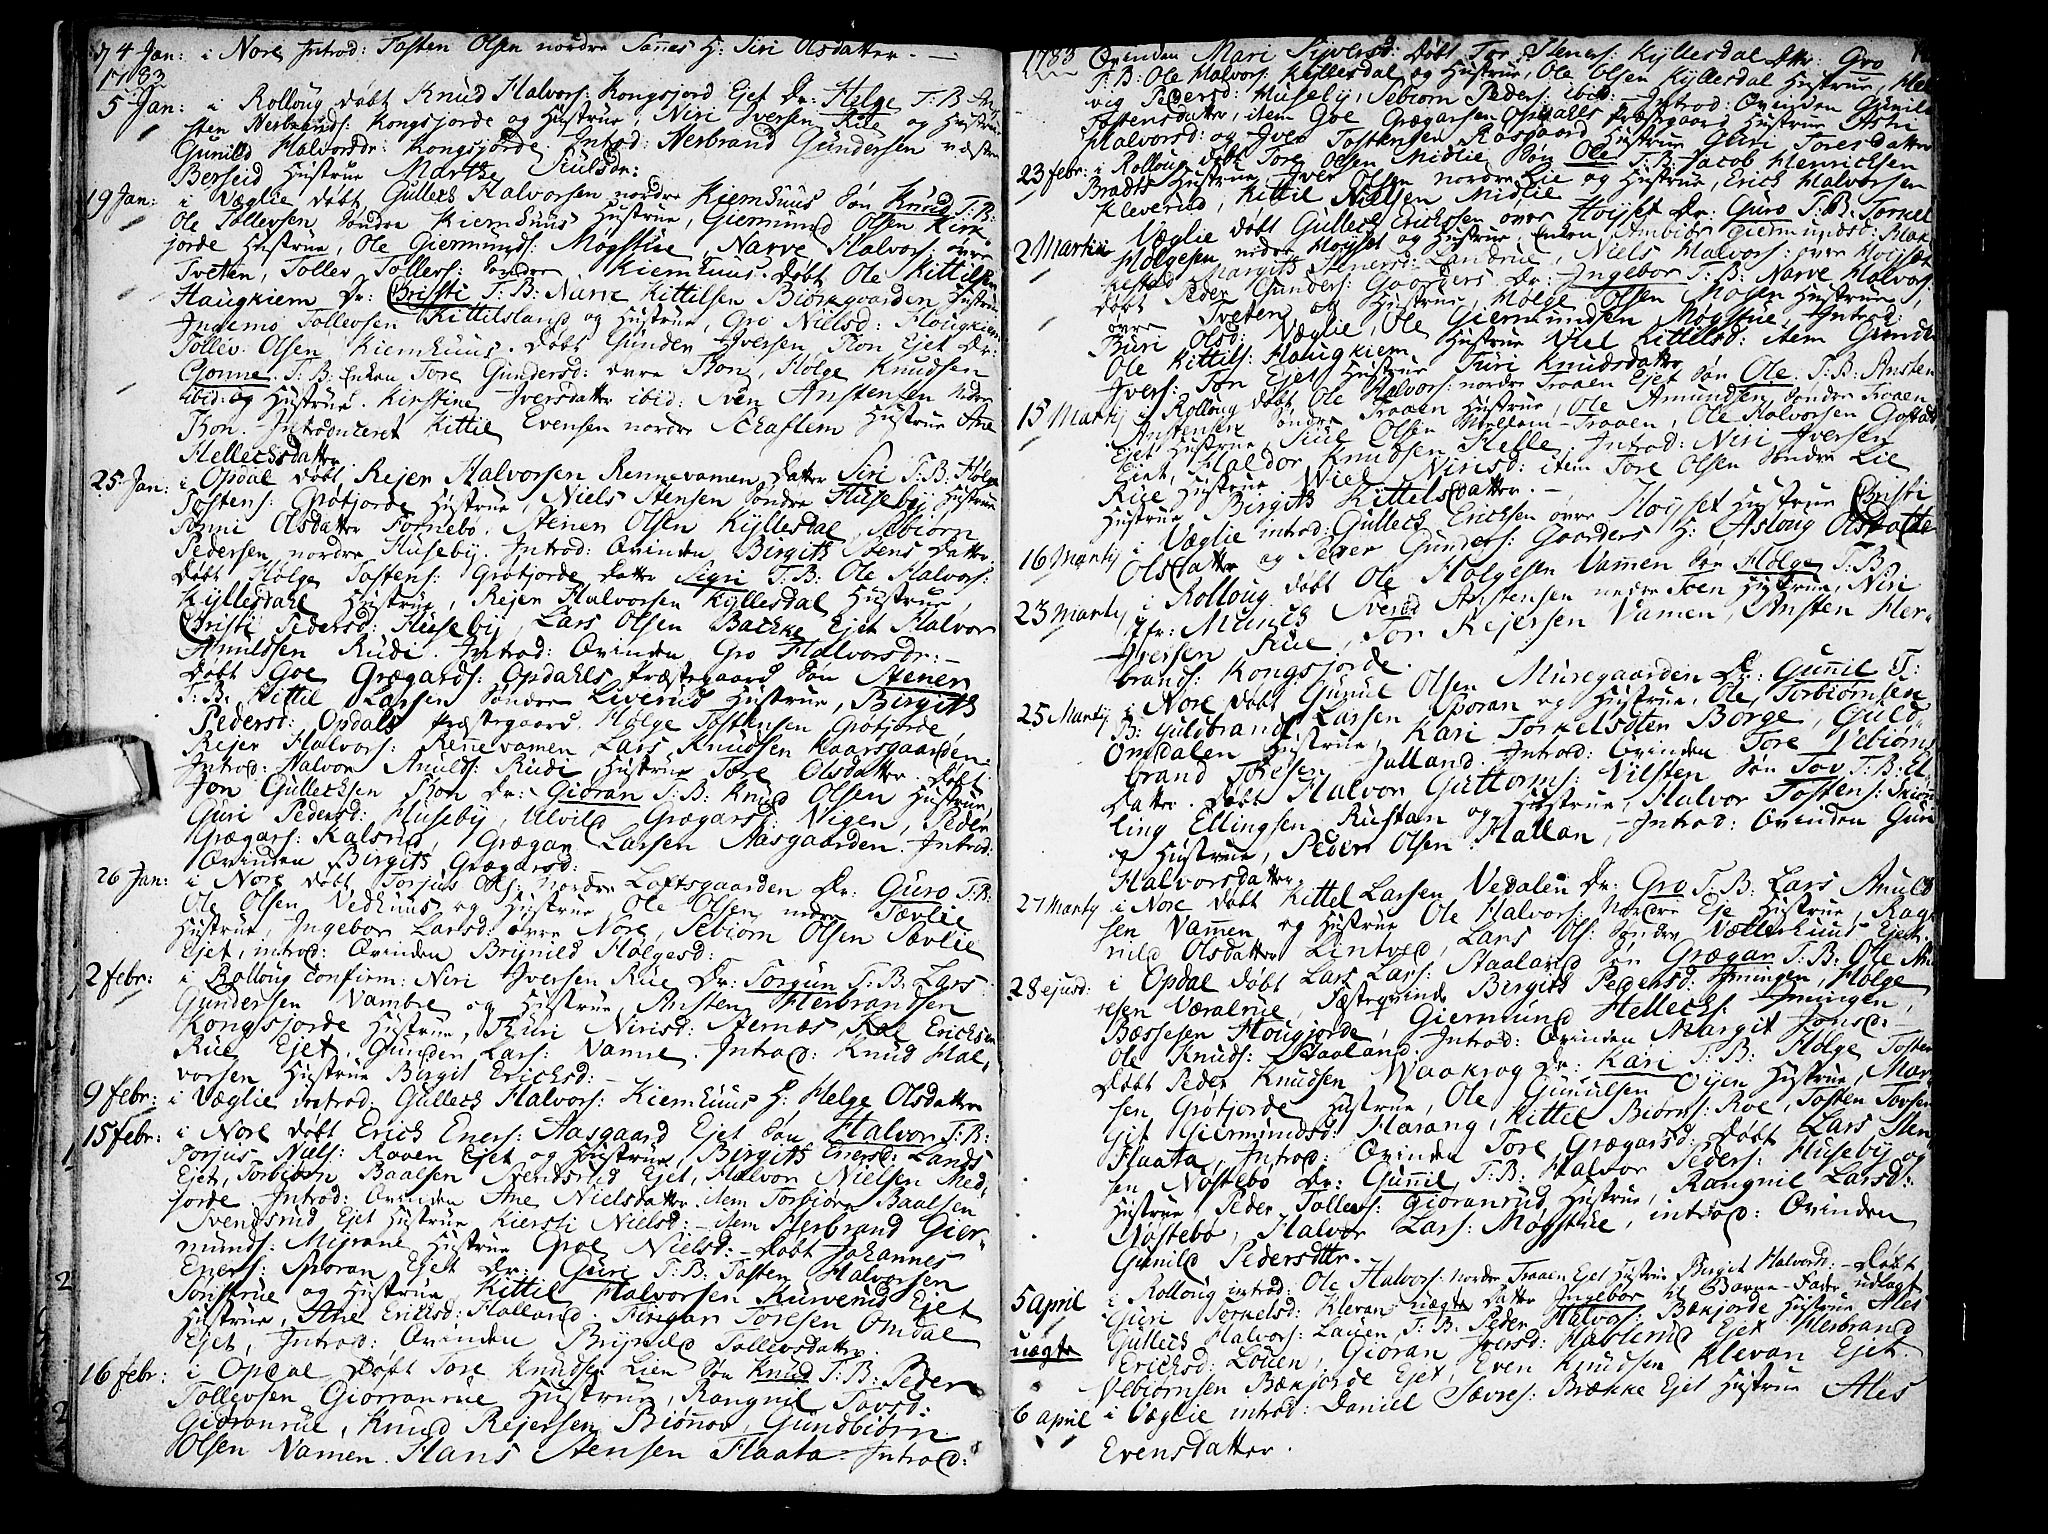 4 Jan: i Nore Introd: Tosten Olsen nordre Sønnes H: Siri Olsdatter. —
1783
5 Jan: i Rolloug døbt Knud Halvors: Kongsjord Ejet Dr: Helge T: B: An
sten Herbrands: Kongsjorde og Hustrue, Niri Iversen Rue og Hustrue
Gunild Halvorsdr: Kongsjorde. Introd: Herbrand Gundersen næstre
Berseid Hustrue Marthe Kiulsdr:
19 Jan: i Væglie døbt, Gulleck Halvorsen nordre Kiemhuus Søn Knud T: B:
Ole Tollevsen Søndre Kiemhuus Hustrue, Giermund Olsen Kirk-
jorde Hustrue, Ole Giermunds: Mogstue, Narve Halvors: øvre
Tveten, Tollev Tollevs: Søndre Kiemhuus. Døbt Ole Kittilsen
Haugkiem Dr: Christi T: B: Narve Kittilsen Biørkgaarden Hustrue
Ingemo Tollevsen Kittilsland og Hustrue, Gro Nielsd: Hougkiem
Tollev Olsen Kiemhuus. Døbt Gunder Iversen Tron Ejet Dr:
Gonne. T: B: Enken Tore Gundersd: øvre Tron, Holge Knudsen
ibid: og Hustrue. Kirstine Iversdatter ibid: Sven Anstensen Nedre
Tron. Introduceret Kittil Evensen nordre Schaflem Hustrue Ane
Hellecksdatter
25 Jan: i Opdal døbt, Rejer Halvorsen Rennevamen Datter Siri T: B: Holge
Tostens: Grøtjorde Hustrue, Niels Stensen Søndre Husebÿ Hustrue
Anni Olsdatter Tornebo, Stener Olsen Kÿllesdal, Sebiørn
Pedersen nordre Husebÿ. Introd: Qvinden Birgith Stens Datter
Døbt Holge Tostens: Grøtjorde Datter Sigri T: B: Ole Halvors:
Kÿllesdahl Hustrue, Rejer Halvorsen Kÿllesdal Hustrue,
Christi Pedersd: Husebÿ, Lars Olsen Bachke Ejet Halvor
Anulssen Rudi. Introd: Qvinden Gro Halvorsdr: —
Døbt Goe Grægards: Opdahls Præstegaard Søn Stener
T: B: Kittil Larsen Søndre Liverud Hustrue, Birgith
Pedersd: Opdals Præstegaard, Holge Tostensen Grøtjorde
Rejer Halvors: Rennevamen Lars Knudsen Kaarsgaarden
Introd: Halvor Anulds: Rudi Hustrue Tore Olsdatter. Døbt
Jon Gullecksen Tron Dr: Gioran T: B: Knud Olsen Hustrue,
Guri Pedersd: Husebÿ, Ulvild Grægarsd: Vigen, Peder
Grægars: Kalsrud, Grægar Larsen Aasgaarden. Introd:
Qvinden Birgith Grægarsd:
26 Jan: i Nore døbt Torjus Ols: Nordre Loftsgaarden Dr: Guro T: B:
Ole Olsen Vedhuus og Hustrue Ole Olsen nedre Tævlie
Hustrue, Ingebor Larsd: øvre Nore, Sebiørn Olsen Sævlie
Ejet, introd: Qvinden Brÿnild Holgesd:
2 febr: i Rolloug Confirm: Neri Iversen Rue Dr: Torgun T: B: Lars
Gundersen Vambre og Hustrue, Ansten Herbransen
Kongsjorde Hustrue, Thuri Nirisd: Sternæs, Roe Ericksen
Rue Ejet, Gunder Lars: Vamre. Introd: Knud Hal,
vorsen Hustrue Birgit Ericksd: —
9 febr: i Væglie introd: Gulleck Halvors: Kiemhuus H: Helge Olsdatter
15 febr: i Nore døbt Erich Eners: Aasgaard Ejet Søn Halvor T: B:
Torjus Niels: Raaen Ejet og Hustrue, Birgith Enersd: Lands
Ejet, Torbiørn Baalsen Svendsrud Ejet, Halvor Nielsen Med,
jorde. Introd: Qvinden Ane Nielsdatter. item Torbiørn Baalsen
Svendsrud Ejet Hustrue Kiersti Nielsd: — item Herbrand Gier-
munds: Mijrane Hustrue Goe Nielsd: — Døbt Johannes
Eners: Sporan Ejet Dr: Guri T: B: Tosten Halvorsen
Tonstrue og Hustrue, Kittil Halvorsen Kurverud Ejet
Hustrue, Ane Ericksd: Halland. Fingar Toresen Omdal
Ejet, Introd: Qvinden Brÿnild Tollevsdatter.
16 febr: i Opdal Døbt Tore Knudsen Lien Søn Knud T: B: Peder
Tollevsen Giorranrue Hustrue, Rangnil Tovsd:
Gioranrue, Knud Rejersen Biønnos, Gundbiørn
Olsen Vamen. Hans Stensen Flaata. Introd:
1783 Qvinden Mari Siversd: Døbt Tor Steners: Kÿllesdal Dtr: Gro
T: B: Ole Halvors: Kÿllesdal og Hustrue, Ole Olsen Kÿllesdal Hustrue, Hel
vig Pedersd: Husebÿ, Sebiørn Peders: ibid: — Introd: Qvinden Gunild
Tostensdatter, item Goe Grægarsen Opdalls Præsgaard Hustrue Astri
Halvorsd: og Iver Tostensen Aasgaard Hustrue Guri Toresdatter
23 febr: i Rolloug døbt Tore Olsen Midlie, Søn Ole T: B: Jacob Henricksen
Bradts Hustrue, Iver Olsen nordre Lie og Hustrue, Erick Halvorsen
Kleverud, Kittil Nielsen Midlie
2 Martii i Væglie døbt Gulleck Ericksen øvre Høÿset Dr: Guro T: B: Tornel
Holgesen nedre Høÿset og Hustrue, Enken Ambiør Giermundsd: Blak
kestad Margith Stenersd: Landrue, Niels Halvors: øvre Høÿset
døbt Peder Gunders: Gaarders Dr: Ingebor T: B: Narve Halvors:
øvre Tveten og Hustrue, Holge Olsen Mosen Hustrue,
Buri Olsd: Væglie, Ole Giermundsen Mogstue, Introd:
Ole Kittils: Haugkiem Hustrue Viel Kittelsd: item Gunder
Ivers: Tron Ejet Hustrue Turi Knudsdatter
15 Martij i Rolloug døbt Ole Halvors: nordre Traaen Ejet Søn Ole. T: B: Ansten
Anstensen Søndre Traaen Hustrue, Ole Amundsen Søndre Traaen
Ejet Hustrue, Kiul Olsen Mellem-Traaen, Ole Halvorsen
Ejet, Haldor Knudsen Helle, Introd: Niri Iversen
Rue Hustrue Wiel Nirisd: item Tore Olsen Søndre Lie
Hustrue Birgith Kittelsdatter. —
16 Martij i Væglie introd: Gulleck Ericksen øvre Høÿset Hustrue Christi
Olsdatter og Peder Gunders: Gaarders H: Asloug Olsdatter
23 Martij i Rolloug døbt Ole Holgesen Vamen Søn Holge T: B:
Hr: Munch Sverd Anstensen nedre Toen Hustrue, Niri
Iversen Rue, Tor Rejersen Vamen, Ansten Her-
brands: Kongsjorde.
25 Martij i Nore døbt Gunul Olsen Muregaarden Dr: Gunnil T:
B: Guldbrand Larsen Sporan og Hustrue, Ole Torbiørnsen
Omdalen Hustrue, Kari Torkelsdtr Borge, Guld-
brand Toresen Julland. Introd: Qvinden Tore Vebiørns
Datter. Døbt Halvor Guttorms: Nilsten Søn Tov T: B: El-
ling Ellingsen Rustan og Hustrue, Halvor Tostens:
og Hustrue, Peder Olsen Hallan, Introd: Qvinden Guri
Halvorsdatter.
27 Martij i Nore døbt Kittel Larsen Vedalen Dr: Gro T: B: Lars Anuld
sen Vamen og Hustrue Ole Halvors: Nordre Eje Hustrue, Rag-
nild Olsdatter Lintved, Lars Ols: Søndre Vætterhuus Ejet.
28 ejusd: i Opdal døbt Lars Lars: Staaland Søn Grægar T: B: Ole
resen Væralrue, Fæsteqvinde Birgith Pedersd: Imingen Holge
Bæssesen Hougjorde, Giermund Hellecks: Imingen,
Ole Knuds: Staaland. Introd: Qvinden Margit Jonsd: —
Døbt Peder Knudsen Waakrog Dr: Kari T: B: Holge Tosten
sen Grøtjorde Hustrue, Ole Gunulsen Oÿen Hustrue, Mar-
git Giermundsd: Harang, Kittil Biørns: Roe, Tosten Tovsen
Flaata, Introd: Qvinden Tore Grægarsd: Døbt Lars Sten
sen Nøstebo Dr: Gunnil T: B: Halvor Peders: Husebÿ og
Hustrue, Peder Tollevs: Gioranrud Hustrue, Rangnil Larsd:
Nøstebo, Halvor Lars: Mogstue, introd: Qvinden
Gunild Pedersdtr.
5 april i Rolloug introd: Ole Halvors: Nordre Traaen Ejet Hustrue Birgit Halvorsd: — Døbt
Guri Tornelsd: Klevan uægte Datter Ingebor til Barne-Fader udlagt
uægte Gulleck Halvors: Lauen, T: B: Peder Halvors: Bækjorde Hustrue Ales
Ericksd: Louen, Gioran Iversd: Haslerud Ejet Herbrand
Vebiørnsen Bækjorde Ejet, Even Knudsen Klevan Ejet
6 april i Væglie introd: Daniel Sævres: Brække Ejet Hustrue Ales
Evensdatter.